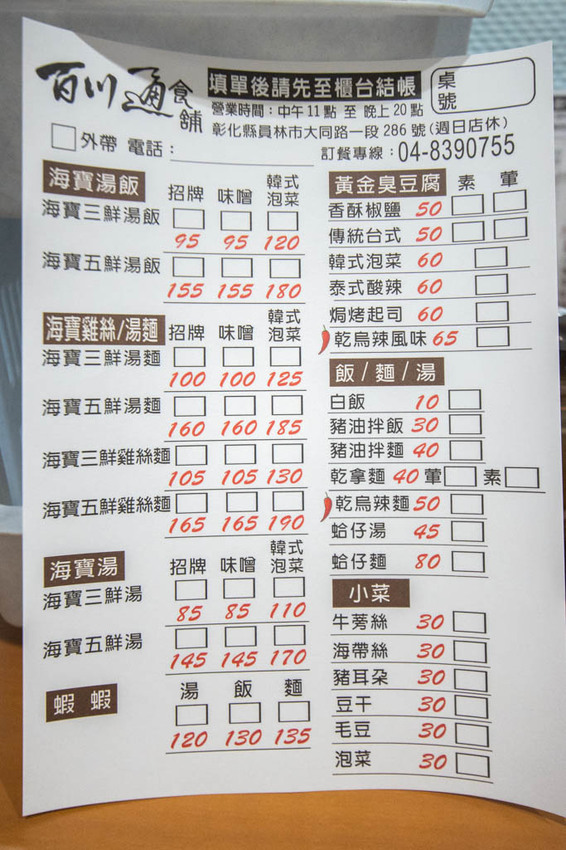 百川通食舖
填單後請先至櫃台結帳
營業時間：中午11點 至 晚上20點
彰化縣員林市大同路一段286號(週日店休)
桌號
外帶 電話：
訂餐專線：04-8390755
海寶湯飯 招牌 味噌 韓式泡菜
海寶三鮮湯飯
95 95 120
海寶五鮮湯飯
155 155 180
海寶雞絲/湯麵 招牌 味噌 韓式泡菜
海寶三鮮湯麵
100 100 125
海寶五鮮湯麵
160 160 185
海寶三鮮雞絲麵
105 105 130
海寶五鮮雞絲麵
165 165 190
海寶湯 招牌 味噌 韓式泡菜
海寶三鮮湯
85 85 110
海寶五鮮湯
145 145 170
蝦 蝦 湯 飯 麵
120 130 135
黃金臭豆腐 素 葷
香酥椒鹽 50
傳統台式 50
韓式泡菜 60
泰式酸辣 60
焗烤起司 60
乾烏辣風味 65
飯/麵/湯
白飯 10
豬油拌飯 30
豬油拌麵 40
乾拿麵 40 葷 素
乾烏辣麵 50
蛤仔湯 45
蛤仔麵 80
小菜
牛蒡絲 30
海帶絲 30
豬耳朵 30
豆干 30
毛豆 30
泡菜 30